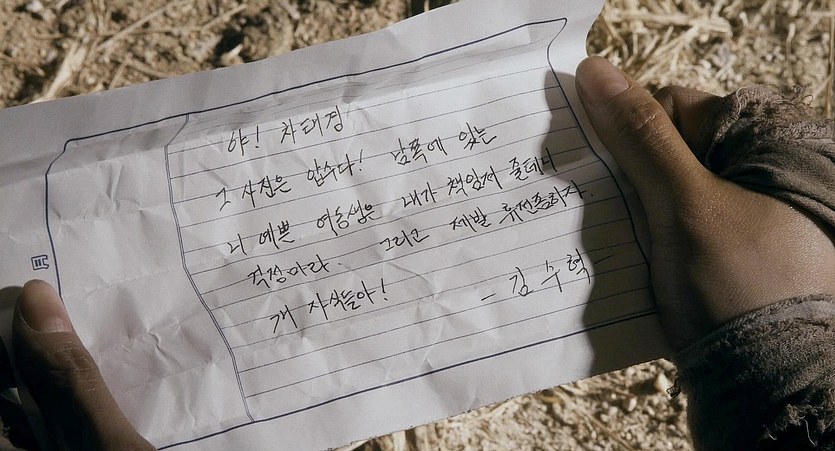 야! 차태경
그 사진은 압수다! 남쪽에 있는
니 예쁜 여동생은 내가 책임져 줄테니
걱정마라. 그리고 제발 휴전좀하자.
개 자식들아!
- 김 수 혁 -